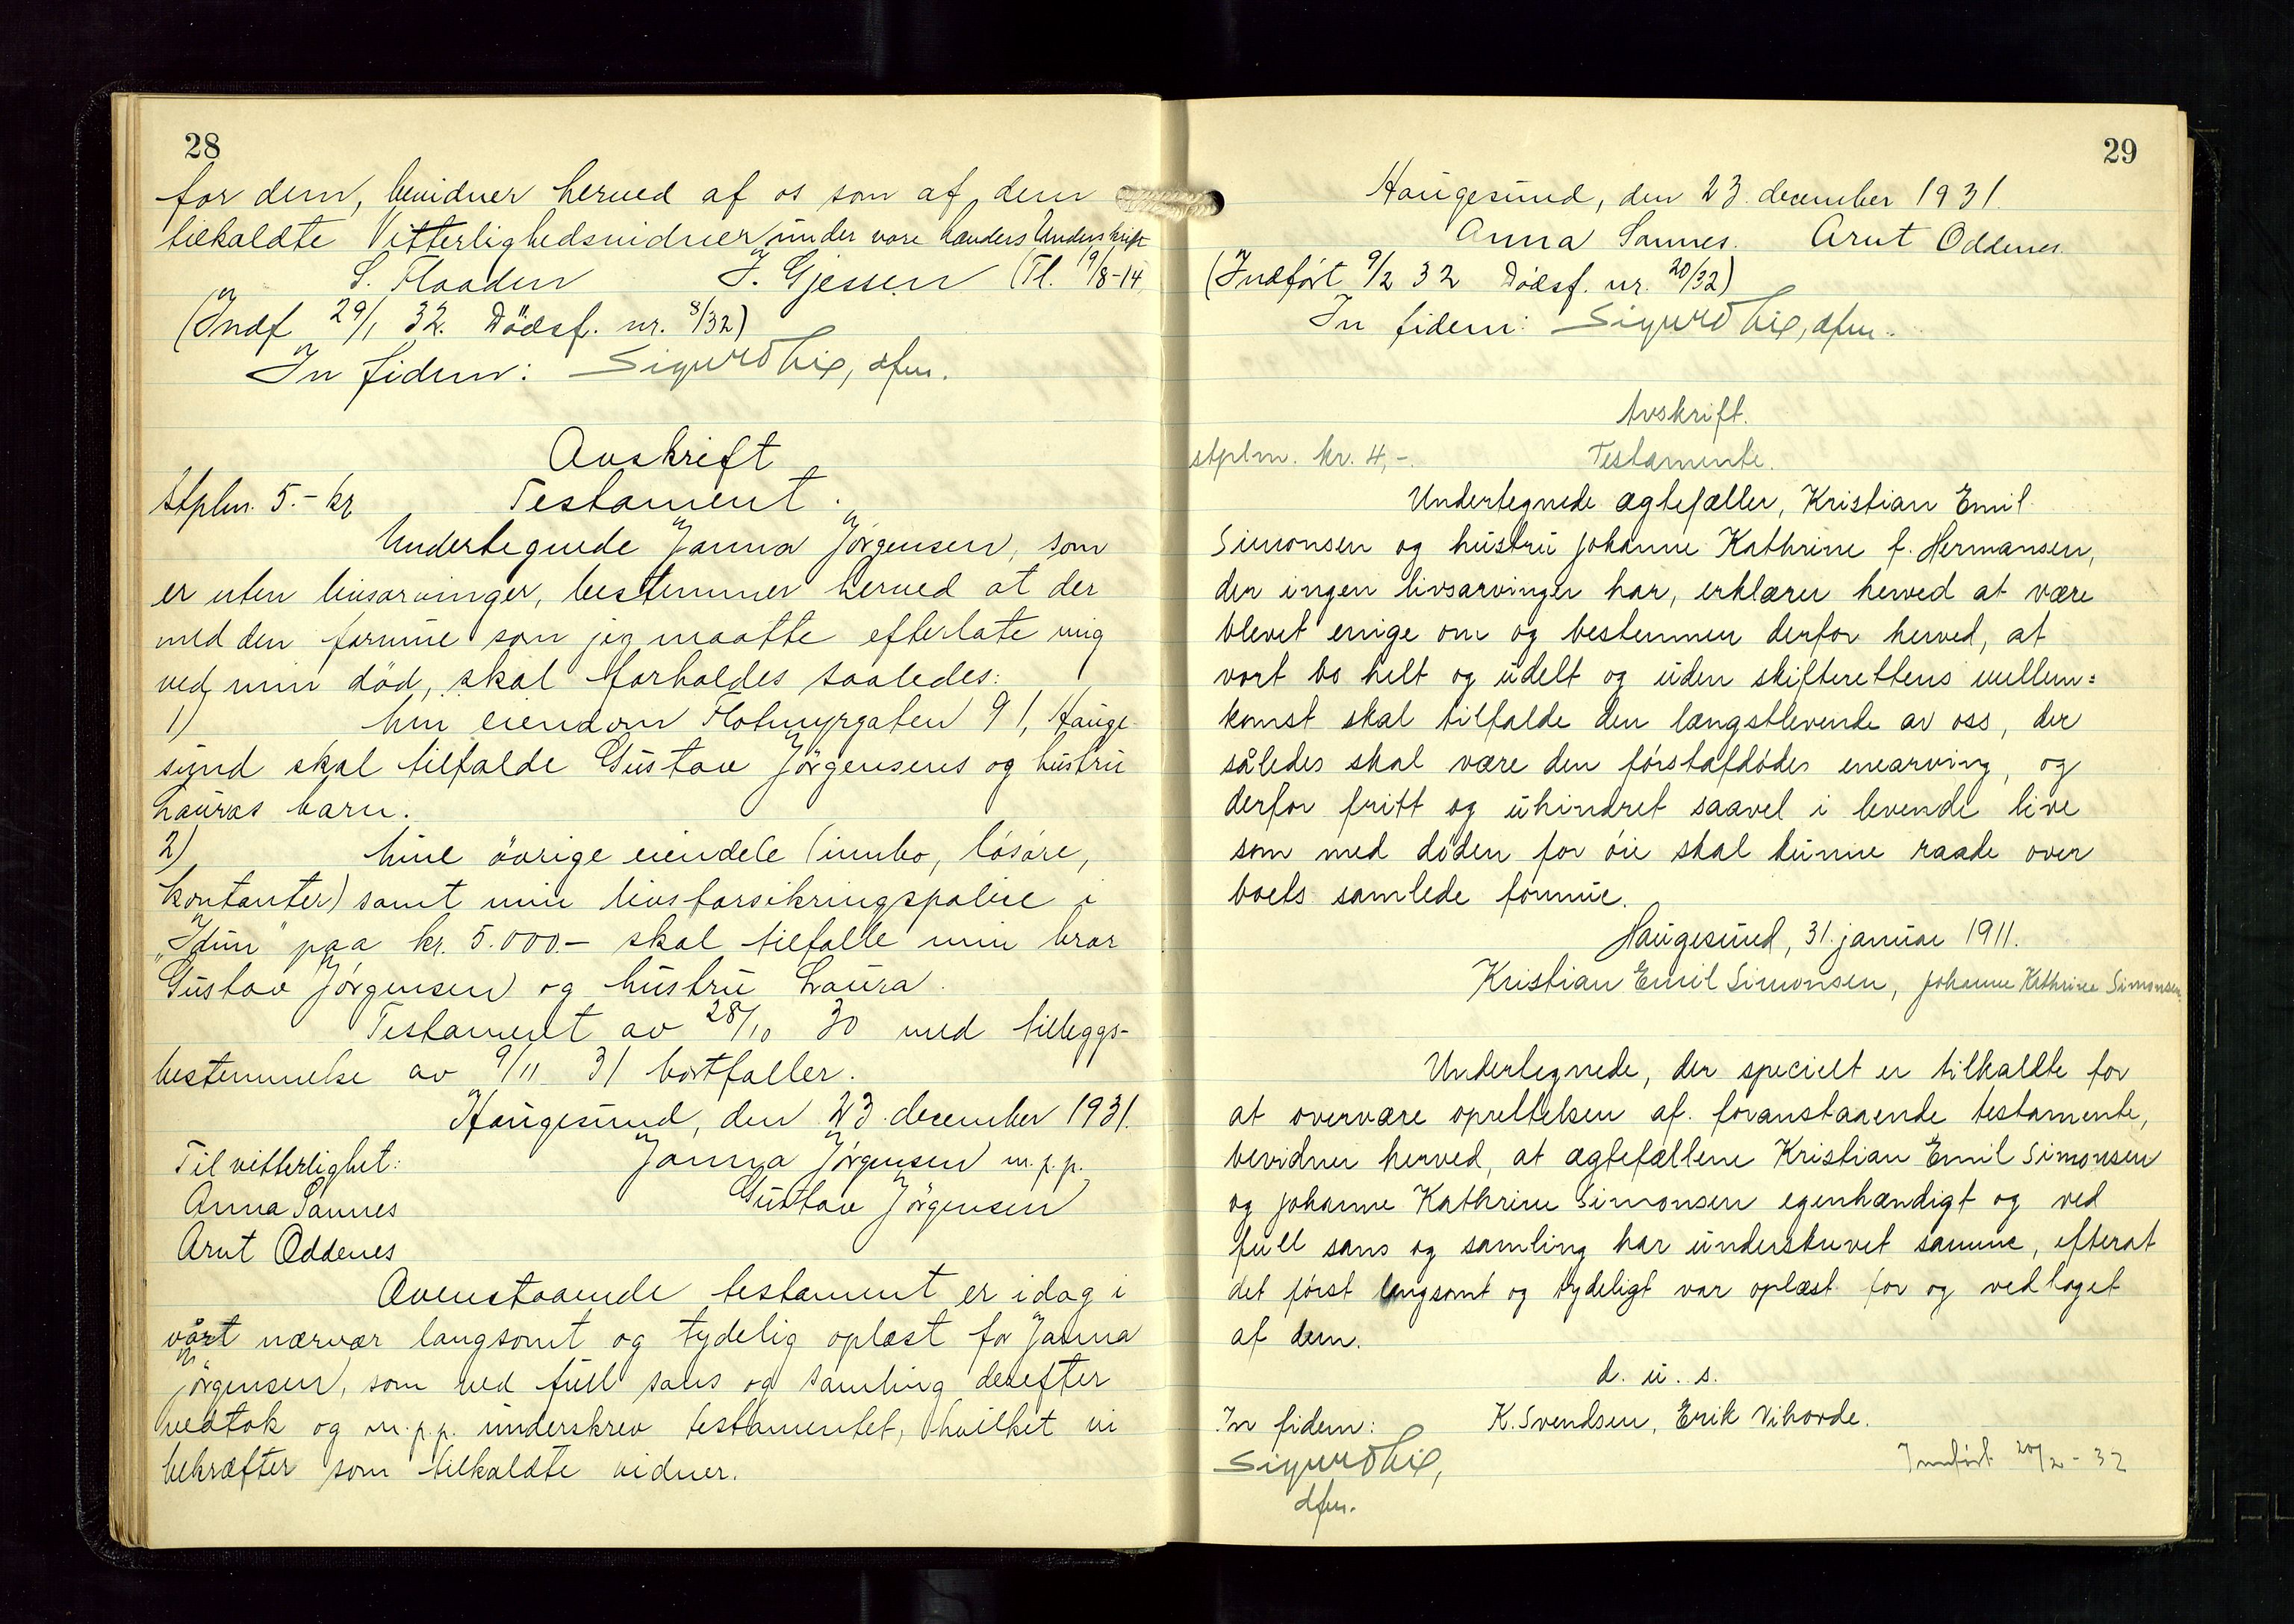 28
for dem, bevidner herved af os som af dem
tilkaldte Vitterlighedsvidner under vore hænders Underskrift
S. Flaaden J. Gjessen (Tl. 19/8-14
(Indf 29/1 32. Dödsf. nr. 8/32)
In fidem: Sigurd Lie, dfm.
Avskrift
Stplm. 5.- kr Testament.
Undertegnede Janna Jørgensen, som
er uten livsarvinger, bestemmer herved at der
med den formue som jeg maatte efterlate mig
ved min död, skal forholdes saaledes:
1) Min eiendom Flotmyrgaten 91, Hauge-
sund skal tilfalde Gustav Jörgensens og hustru
Lauras barn.
2) Mine övrige eiendele (innbo, lösöre,
kontanter) samt min livsforsikringspolise i
"Idun" paa kr. 5.000.- skal tilfalle min bror
Gustav Jørgensen og hustru Laura.
Testament av 28/10 30 med tilleggs-
bestemmelse av 9/11 31 bortfaller.
Haugesund, den 23. december 1931.
Til vitterlighet: Janna Jørgensen m.p.p.
Anna Sannes Gustav Jörgensen
Arnt Oddenes
Ovenstaaende testament er idag i
vårt nærvær langsomt og tydelig oplæst for Janna
Jörgensen, som ved full sans og samling derefter
vedtok og m.p.p. underskrev testamentet, hvilket vi
bekræfter som tilkaldte vidner.
29
Haugesund, den 23. december 1931.
Anna Sannes. Arnt Oddenes.
(Indført 9/2 32 Dödsf. nr. 20/32)
In fidem: Sigurd Lie, dfm.
Avskrift.
stplm. kr. 4,-. Testamente.
Undertegnede ægtefæller, Kristian Emil
Simonsen og hustru Johanne Kathrine f. Hermansen,
der ingen livsarvinger har, erklærer herved at være
blevet enige om og bestemmer derfor herved, at
vort bo helt og udelt og uden skifterettens mellem=
komst skal tilfalde den længstlevende av oss, der
således skal være den førstafdødes enearving, og
derfor fritt og uhindret saavel i levende live
som med døden for øie skal kunne raade over
boets samlede formue.
Haugesund, 31. januar 1911.
Kristian Emil Simonsen, Johanne Kathrine Simonsen.
Undertegnede, der specielt er tilkaldte for
at overvære oprettelsen af foranstaaende testamente,
bevidner herved, at ægtefællene Kristian Emil Simonsen
og Johanne Kathrine Simonsen egenhændigt og ved
full sans og samling har underskrevet samme, efterat
det først langsomt og tydeligt var oplæst for og vedtaget
af dem.
d. u. s.
In fidem: K. Svendsen, Erik Vihovde.
Sigurd Lie, Innført 20/2-32
dfm.